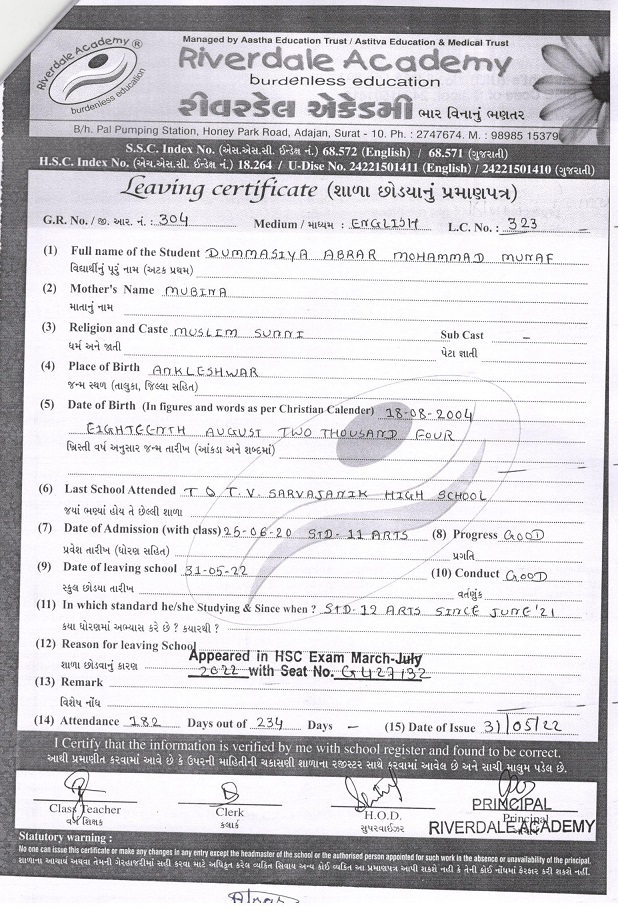 Riverdale Academy ®
burdenless education
Managed by Aastha Education Trust / Astitva Education & Medical Trust
Riverdale Academy
burdenless education
રીવરડેલ એકેડમી ભાર વિનાનું ભણતર
B/h. Pal Pumping Station, Honey Park Road, Adajan, Surat - 10. Ph. : 2747674. M. : 98985 15379
S.S.C. Index No. (એસ.એસ.સી. ઈન્ડેક્ષ નં.) 68.572 (English) / 68.571 (ગુજરાતી)
H.S.C. Index No. (એચ.એસ.સી. ઈન્ડેક્ષ નં.) 18.264 / U-Dise No. 24221501411 (English) / 24221501410 (ગુજરાતી)
Leaving certificate (શાળા છોડયાનું પ્રમાણપત્ર)
G.R. No. / જી. આર. નં. : 304 Medium / માધ્યમ : ENGLISH L.C. No. : 323
(1) Full name of the Student DUMMASIYA ABRAR MOHAMMAD MUNAF
વિદ્યાર્થીનું પૂરું નામ (અટક પ્રથમ)
(2) Mother's Name MUBINA
માતાનું નામ
(3) Religion and Caste MUSLIM SUNNI Sub Cast –
ધર્મ અને જાતી પેટા જ્ઞાતી
(4) Place of Birth ANKLESHWAR
જન્મ સ્થળ (તાલુકા, જિલ્લા સહિત)
(5) Date of Birth (In figures and words as per Christian Calender) 18-08-2004
EIGHTEENTH AUGUST TWO THOUSAND FOUR
ખ્રિસ્તી વર્ષ અનુસાર જન્મ તારીખ (આંકડા અને શબ્દમાં)
(6) Last School Attended T & T.V. SARVAJANIK HIGH SCHOOL
જયાં ભણ્યાં હોય તે છેલ્લી શાળા
(7) Date of Admission (with class) 25-06-20 STD-11 ARTS (8) Progress GOOD
પ્રવેશ તારીખ (ધોરણ સહિત) પ્રગતિ
(9) Date of leaving school 31-05-22 (10) Conduct GOOD
સ્કુલ છોડયા તારીખ વર્તણુંક
(11) In which standard he/she Studying & Since when ? STD-12 ARTS SINCE JUNE'21
કયા ધોરણમાં અભ્યાસ કરે છે ? કયારથી ? :
(12) Reason for leaving School Appeared in HSC Exam March-July
શાળા છોડવાનું કારણ 2022 with Seat No. G427132
(13) Remark
વિશેષ નોંધ
(14) Attendance 182 Days out of 234 Days – (15) Date of Issue 31/05/22
I Certify that the information is verified by me with school register and found to be correct.
આથી પ્રમાણીત કરવામાં આવે છે કે ઉપરની માહિતીની ચકાસણી શાળાના રજીસ્ટર સાથે કરવામાં આવેલ છે અને સાચી માલુમ પડેલ છે.
Class Teacher Clerk H.O.D. PRINCIPAL Principal
વર્ગ શિક્ષક કલાર્ક સુપરવાઈઝર RIVERDALE ACADEMY
Statutory warning :
No one can issue this certificate or make any changes in any entry except the headmaster of the school or the authorised person appointed for such work in the absence or unavailability of the principal.
શાળાના આચાર્ય અથવા તેમની ગેરહાજરીમાં સહી કરવા માટે અધિકૃત કરેલ વ્યકિત સિવાય અન્ય કોઈ વ્યકિત આ પ્રમાણપત્ર આપી શકશે નહી કે તેની કોઈ નોંધમાં ફેરફાર કરી શકશે નહીં.